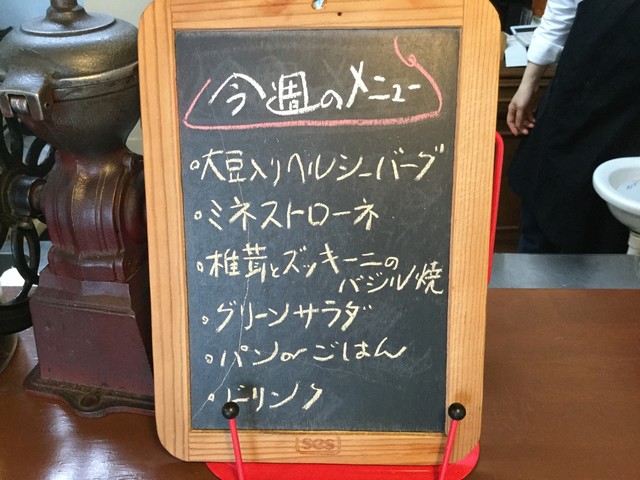 今週のメニュー
大豆入りヘルシーバーグ
ミネストローネ
椎茸とズッキーニの
バジル焼
グリーンサラダ
パンorごはん
ドリンク
SCS